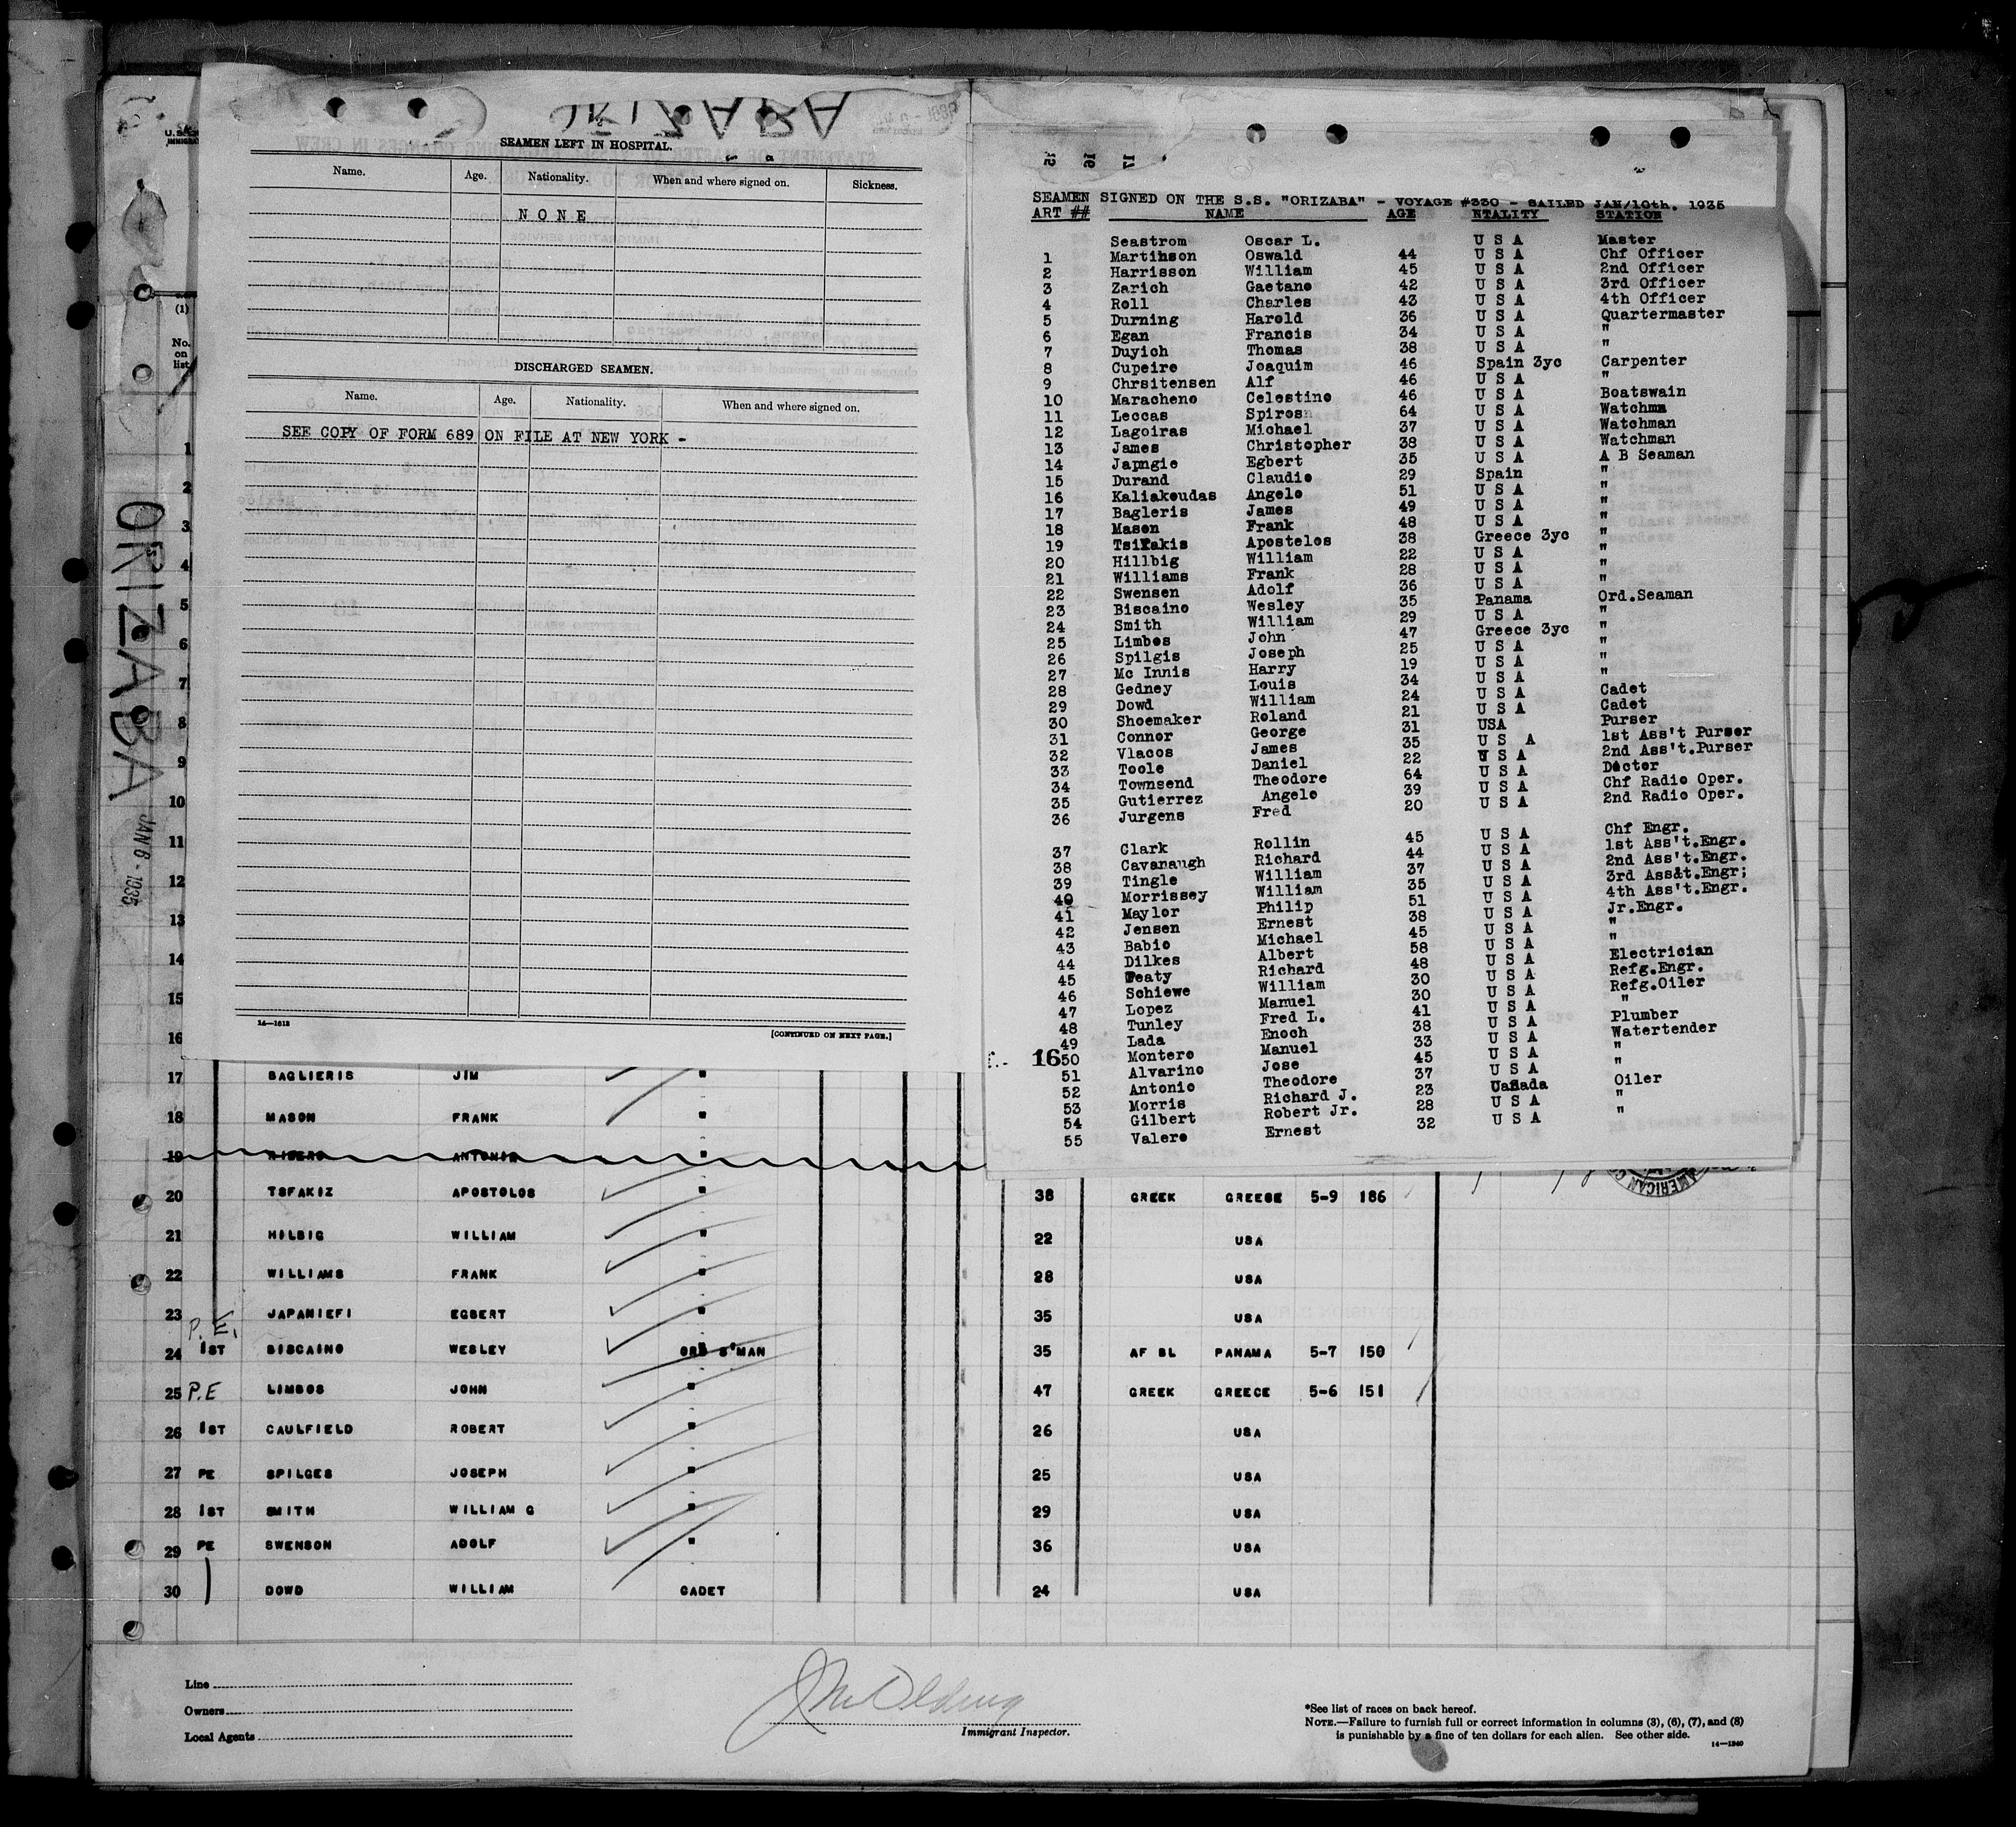 ORIZABA
SEAMEN LEFT IN HOSPITAL.
Name. Age. Nationality. When and where signed on. Sickness.
NONE
DISCHARGED SEAMEN.
Name. Age. Nationality. When and where signed on.
SEE COPY OF FORM 689 ON FILE AT NEW YORK -
14—1612
[CONTINUED ON NEXT PAGE.]
15 16 17
SEAMEN SIGNED ON THE S.S. "ORIZABA" - VOYAGE #330 - SAILED JAN/10th. 1935
ART ## NAME AGE NTALITY STATION
Seastrom Oscar L. U S A Master
1 Martinson Oswald 44 U S A Chf Officer
2 Harrisson William 45 U S A 2nd Officer
3 Zarich Gaetano 42 U S A 3rd Officer
4 Roll Charles 43 U S A 4th Officer
5 Durning Harold 36 U S A Quartermaster
6 Egan Francis 34 U S A "
7 Duyich Thomas 38 U S A "
8 Cupeiro Joaquim 46 Spain 3yc Carpenter
9 Chrsitensen Alf 46 U S A "
10 Maracheno Celestino 46 U S A Boatswain
11 Leccas Spiros 64 U S A Watchma
12 Lagoiras Michael 37 U S A Watchman
13 James Christopher 38 U S A Watchman
14 Japngie Egbert 35 U S A A B Seaman
15 Durand Claudio 29 Spain "
16 Kaliakoudas Angelo 51 U S A "
17 Bagleris James 49 U S A "
18 Mason Frank 48 U S A "
19 Tsifakis Apostolos 38 Greece 3yc "
20 Hillbig William 22 U S A "
21 Williams Frank 28 U S A "
22 Swensen Adolf 36 U S A "
23 Biscaino Wesley 35 Panama Ord.Seaman
24 Smith William 29 U S A "
25 Limbos John 47 Greece 3yc "
26 Spilgis Joseph 25 U S A "
27 Mc Innis Harry 19 U S A "
28 Gedney Louis 34 U S A "
29 Dowd William 24 U S A Cadet
30 Shoemaker Roland 21 U S A Cadet
31 Connor George 31 USA Purser
32 Vlacos James 35 U S A 1st Ass't Purser
33 Toole Daniel 22 U S A 2nd Ass't.Purser
34 Townsend Theodore 64 U S A Doctor
35 Gutierrez Angelo 39 U S A Chf Radio Oper.
36 Jurgens Fred 20 U S A 2nd Radio Oper.
37 Clark Rollin 45 U S A Chf Engr.
38 Cavanaugh Richard 44 U S A 1st Ass't.Engr.
39 Tingle William 37 U S A 2nd Ass't.Engr.
40 Morrissey William 35 U S A 3rd Ass&t.Engr;
41 Maylor Philip 51 U S A 4th Ass't.Engr.
42 Jensen Ernest 38 U S A Jr.Engr.
43 Babic Michael 45 U S A "
44 Dilkes Albert 58 U S A "
45 Featy Richard 48 U S A Electrician
46 Schiewe William 30 U S A Refg.Engr.
47 Lopez Manuel 30 U S A Refg.Oiler
48 Tunley Fred L. 41 U S A "
49 Lada Enoch 38 U S A Plumber
50 Montero Manuel 33 U S A Watertender
51 Alvarino Jose 45 U S A "
52 Antonio Theodore 37 U S A "
53 Morris Richard J. 23 Canada Oiler
54 Gilbert Robert Jr. 28 U S A "
55 Valero Ernest 32 U S A "
(1)
No. on list
ORIZABA
JAN 6 - 1935
1
2
3
4
5
6
7
8
9
10
11
12
13
14
15
16 16
17 BAGLIERIS JIM "
18 MASON FRANK "
19 ANTONIO "
20 TSFAKIZ APOSTOLOS " 38 GREEK GREECE 5-9 186
21 HILBIG WILLIAM " 22 USA
22 WILLIAMS FRANK " 28 USA
23 JAPANIEFI EGBERT " 35 USA
P.E.
24 1ST BISCAINO WESLEY ORD S'MAN 35 AF BL PANAMA 5-7 150
25 P.E LIMBOS JOHN " 47 GREEK GREECE 5-6 151
26 1ST CAULFIELD ROBERT " 26 USA
27 PE SPILGES JOSEPH " 25 USA
28 1ST SMITH WILLIAM G " 29 USA
29 PE SWENSON ADOLF " 36 USA
30 DOWD WILLIAM CADET 24 USA
AMERICAN
Line
Owners
Local Agents
Immigrant Inspector.
*See list of races on back hereof.
NOTE.—Failure to furnish full or correct information in columns (3), (6), (7), and (8)
is punishable by a fine of ten dollars for each alien. See other side.
14—1240